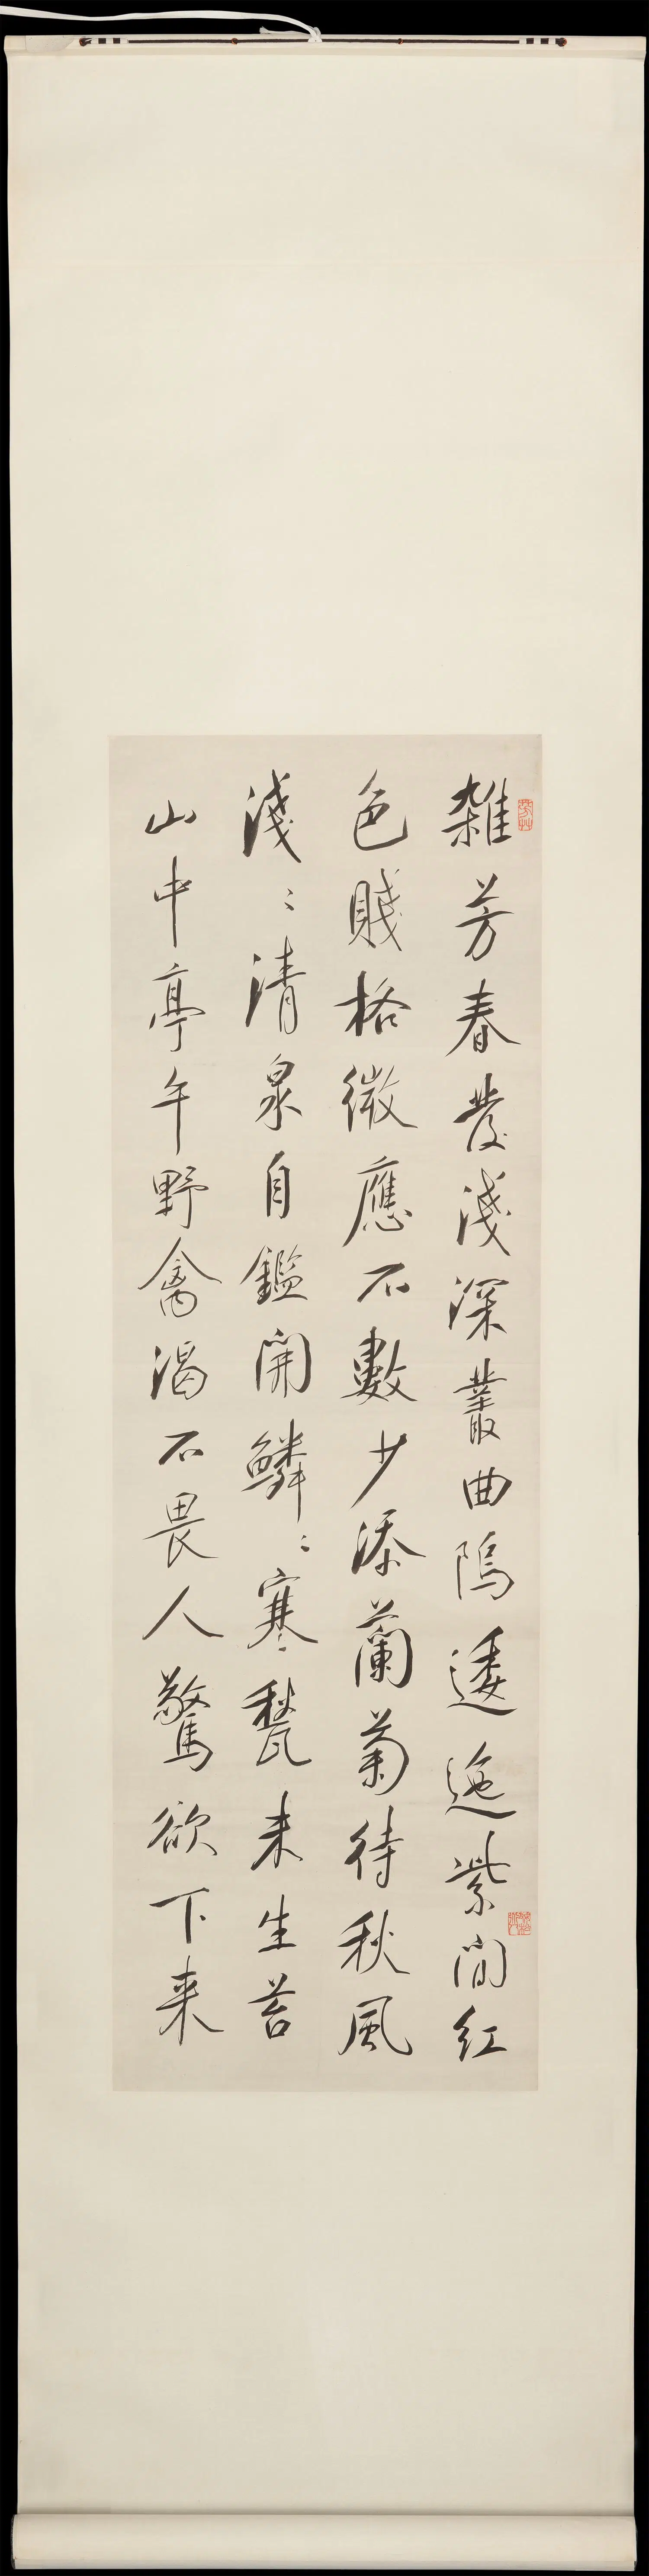 雜芳春發淺深叢曲隖逶迤紫間紅
色賤格微應不數少添蘭菊待秋風
淺〻清泉自鑑開鱗〻寒甃未生苔
山中亭午野禽渴不畏人驚欲下来